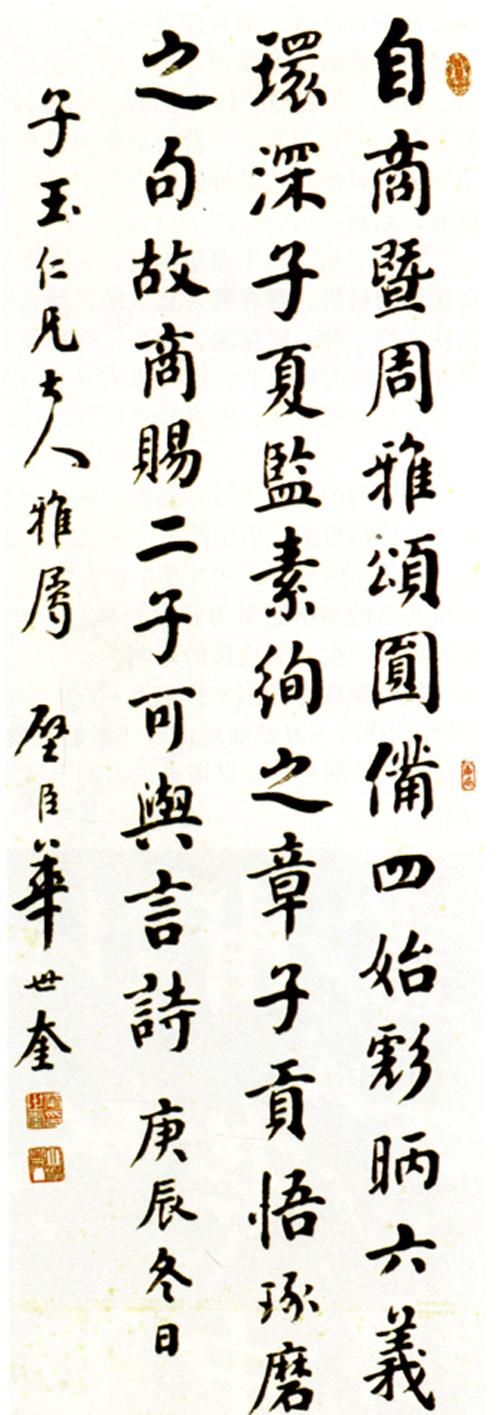 自商暨周雅頌圓備四始彪昞六義
環深子夏監素絢之章子貢悟琢磨
之句故商賜二子可與言詩 庚辰冬日
子玉仁兄大人雅屬 壁臣華世奎